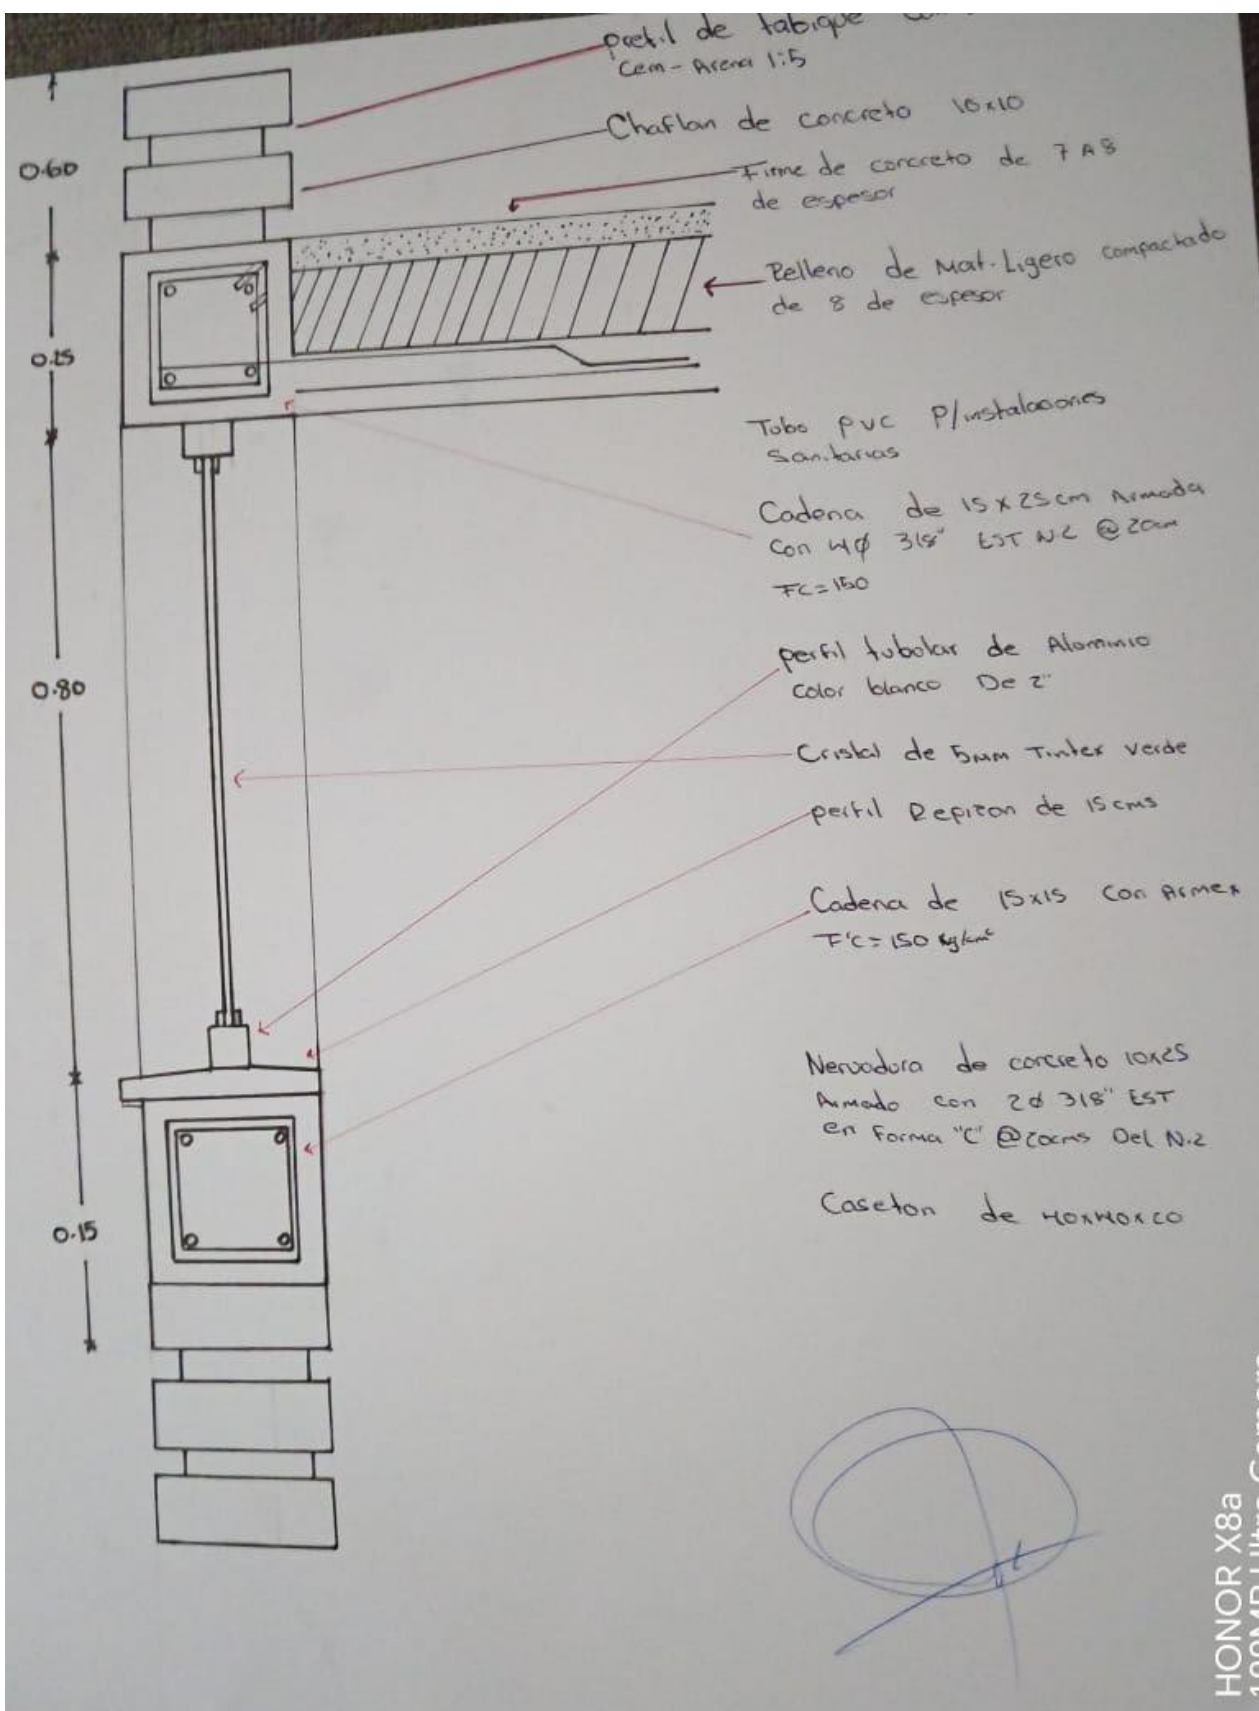 pretil de tabique
Cem-Arena 1:5
0.60
Chaflan de concreto 10x10
Firme de concreto de 7 A 8
de espesor
Relleno de Mat. Ligero compactado
de 8 de espesor
0.25
Tubo PVC P/instalaciones
Sanitarias
Cadena de 15 x 25 cm Armada
Con 4φ 3/8" EST N.2 @20cm
FC=150
0.80
perfil tubular de Aluminio
Color blanco De 2"
Cristal de 5mm Tintex Verde
perfil Repizon de 15 cms
Cadena de 15x15 Con Armex
F'C=150 kg/cm²
Nervadura de concreto 10x25
Armado con 2φ 3/8" EST
en Forma "C" @20cms Del N.2
Caseton de 40x40x20
0.15
HONOR X8a